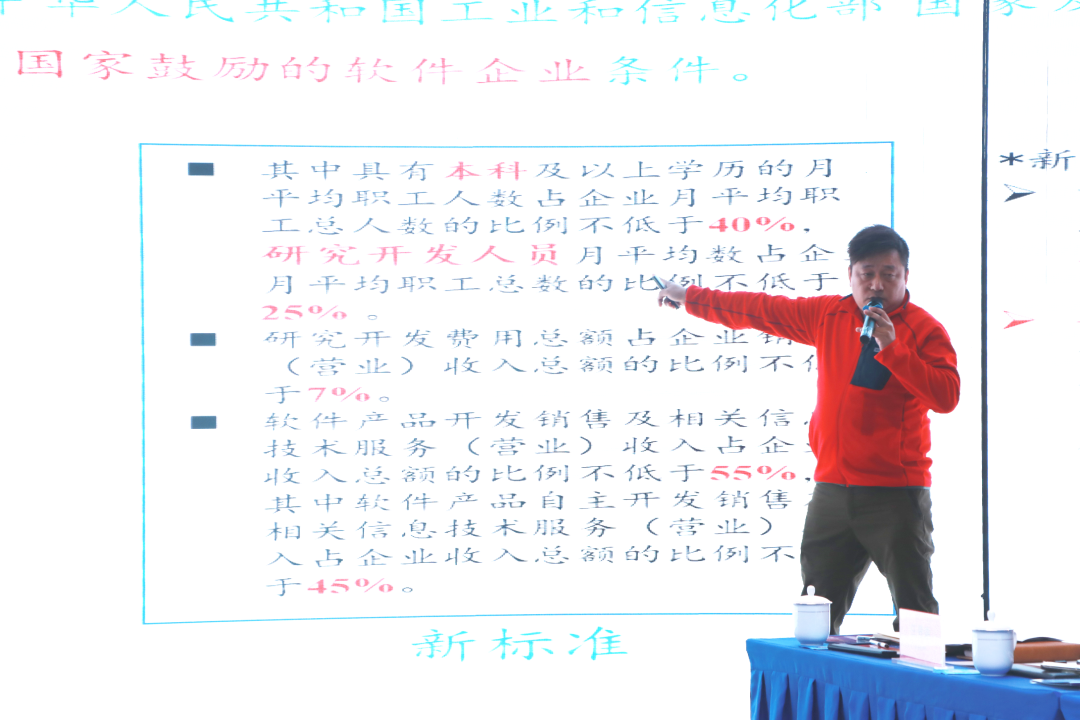 中华人民共和国工业和信息化部 国家发
国家鼓励的软件企业条件。
其中具有本科及以上学历的月
平均职工人数占企业月平均职
工总人数的比例不低于40%,
研究开发人员月平均数占企
月平均职工总数的比例不低于
25%。
研究开发费用总额占企业销
（营业）收入总额的比例不低
于7%。
软件产品开发销售及相关信息
技术服务（营业）收入占企业
收入总额的比例不低于55%,
其中软件产品自主开发销售
相关信息技术服务（营业）
入占企业收入总额的比例不
于45%。
新标准
*新